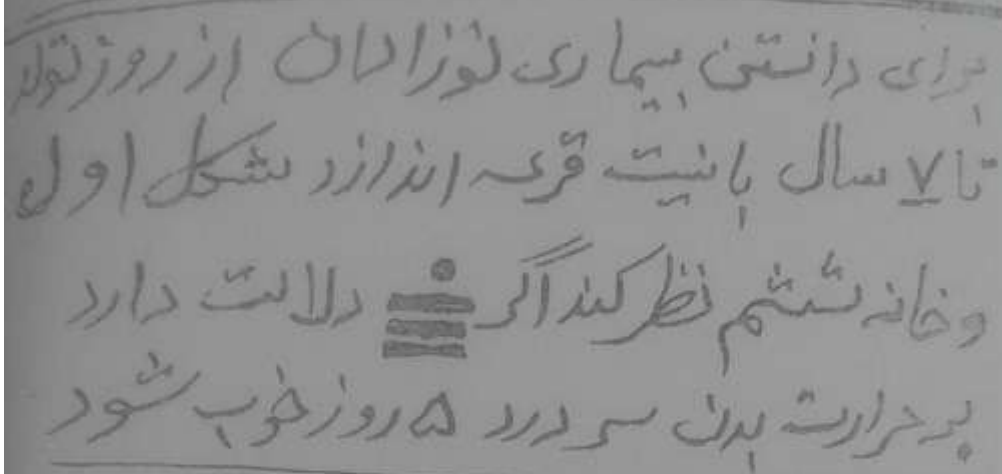 برای دانستن بیماری نوزادان از روز تولد
تا ۷ سال با نیت قرعه اندازد شکل اول
و خانه ششم نظر کند اگر دلالت دارد
بر حرارت بدن سر درد ۵ روز خوب شود